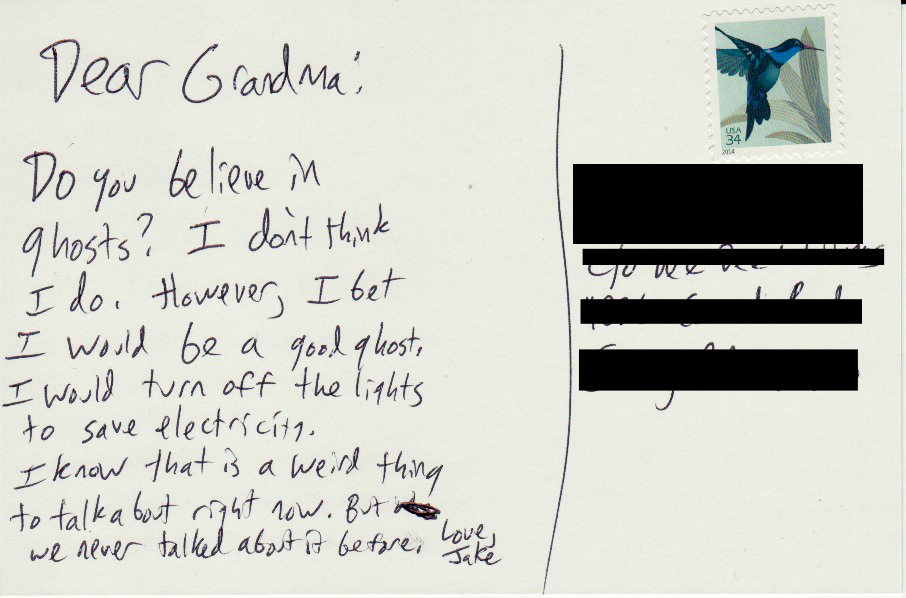 Dear Grandma:
Do you believe in
ghosts? I don't think
I do. However, I bet
I would be a good ghost.
I would turn off the lights
to save electricity.
I know that is a weird thing
to talk about right now. But
we never talked about it before.
Love,
Jake
USA
34
2014